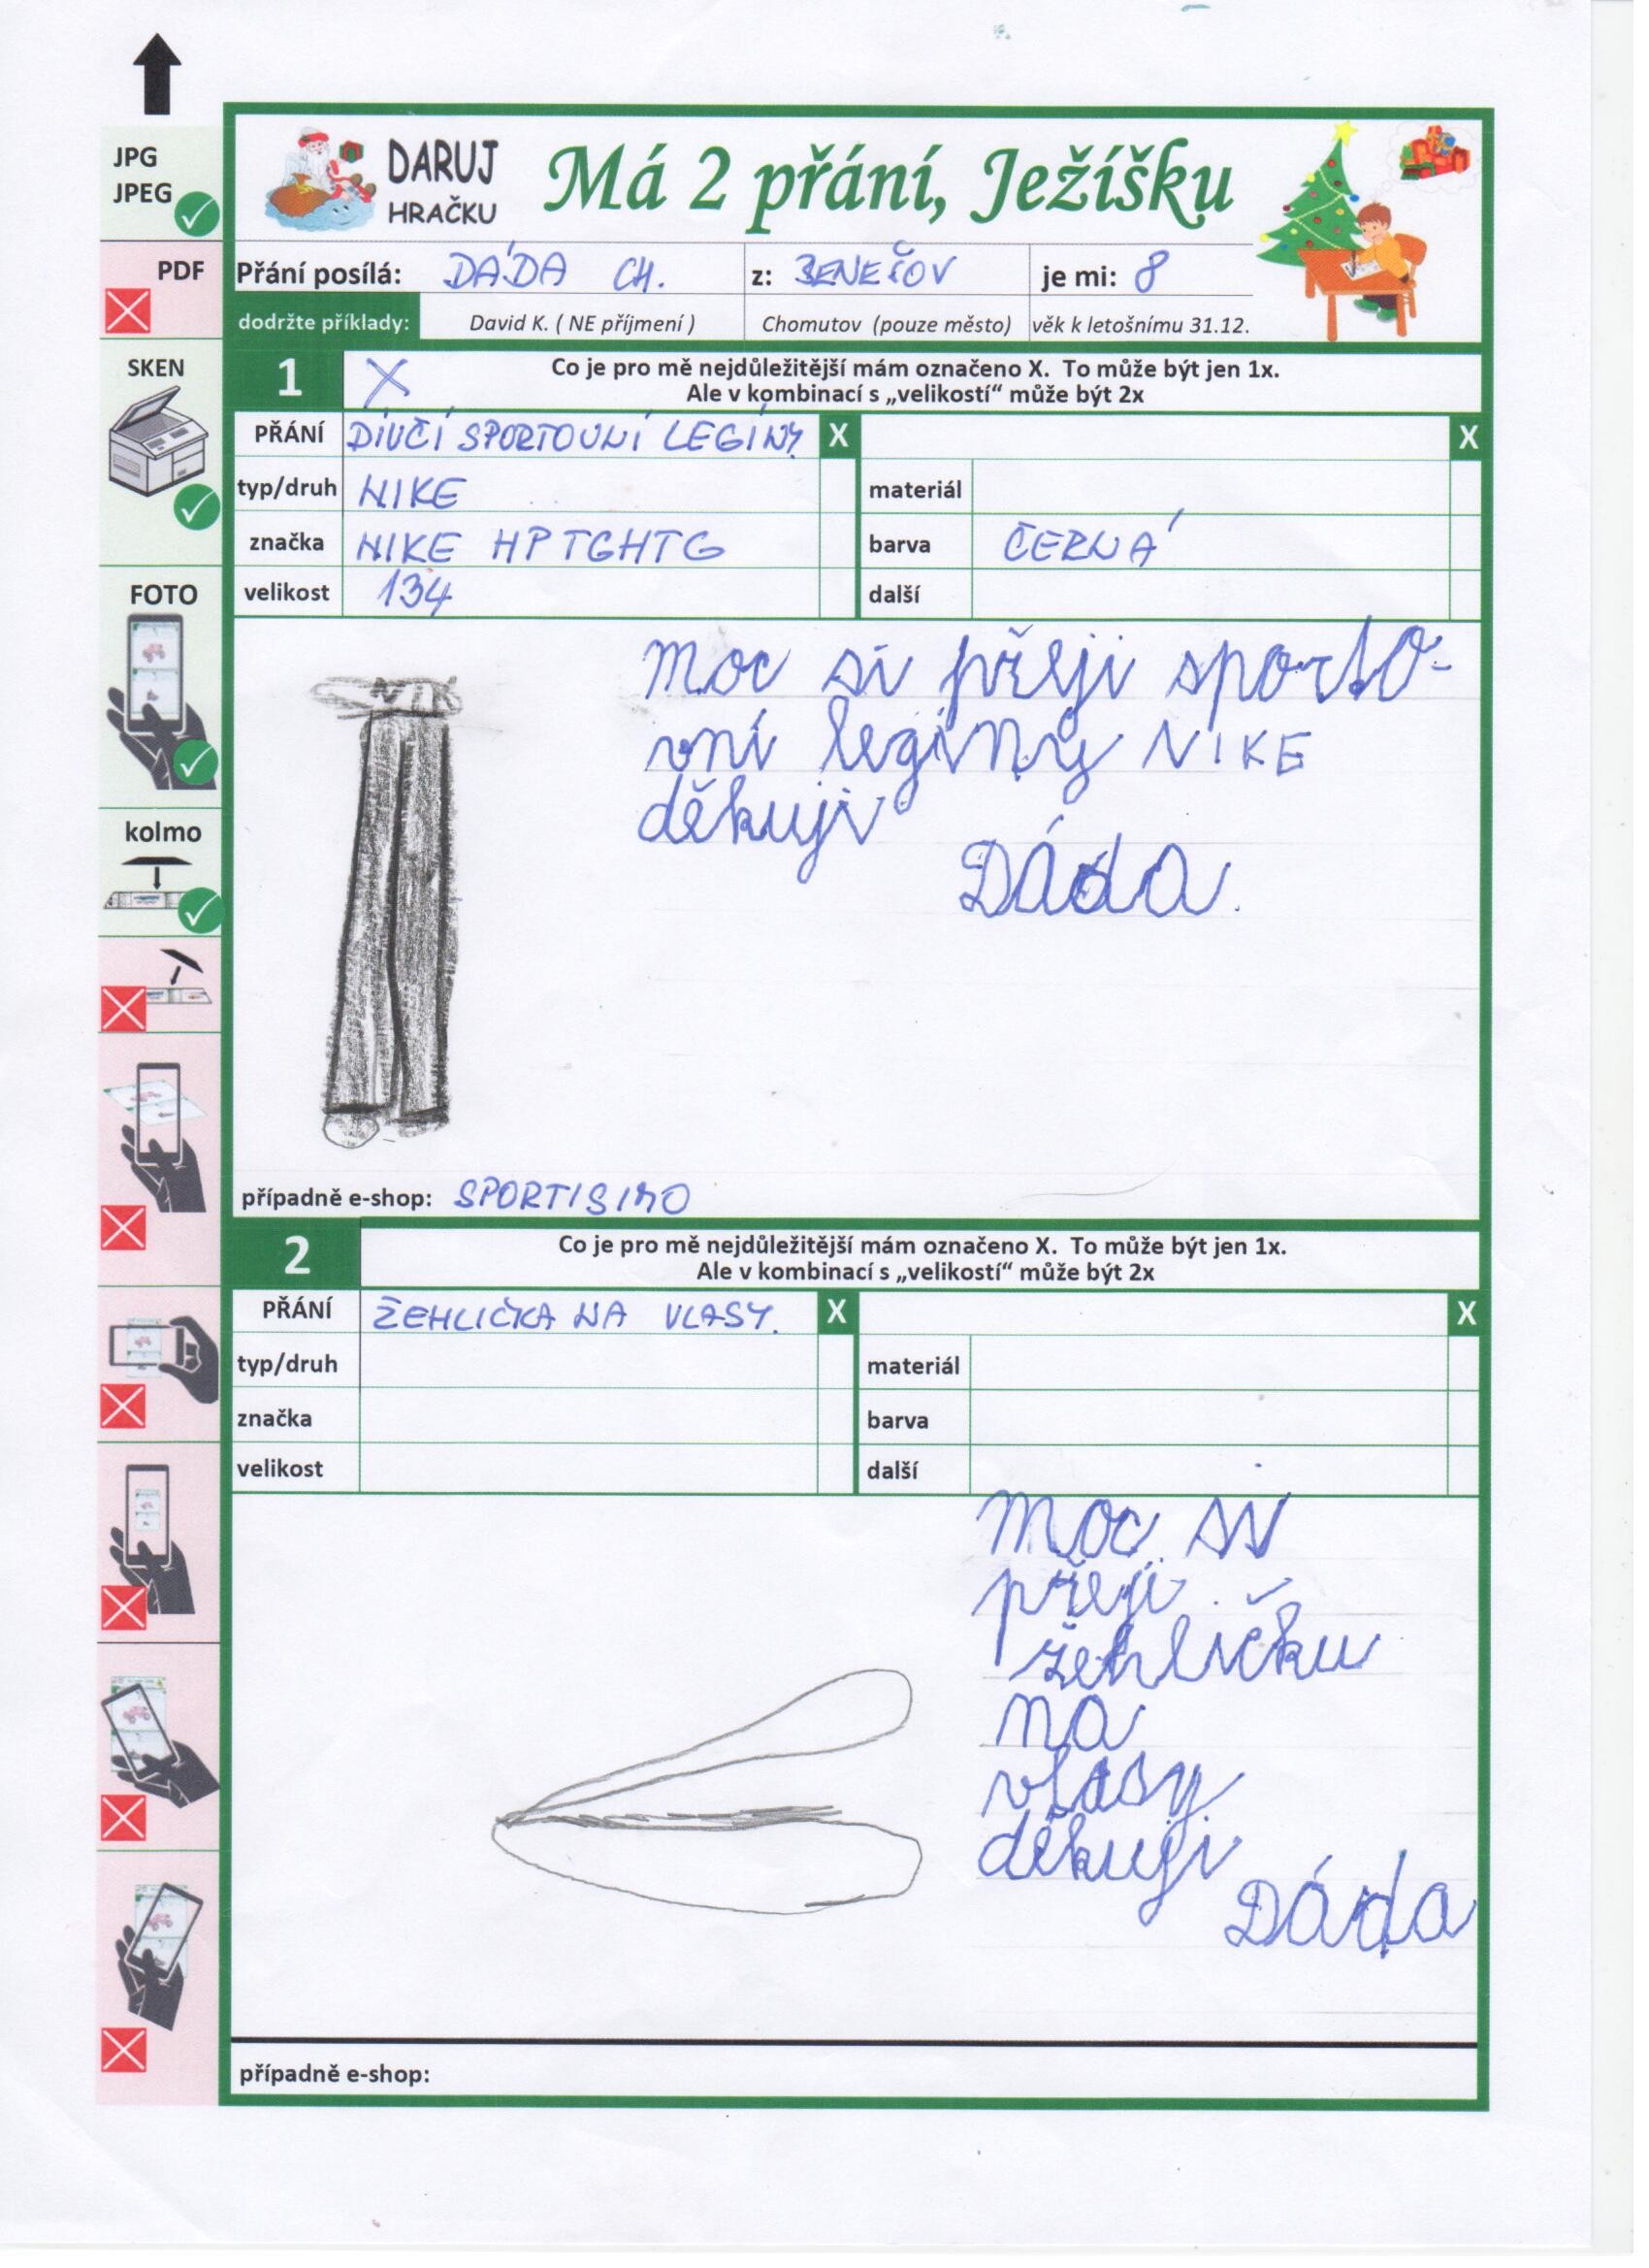 JPG
JPEG
PDF
SKEN
FOTO
kolmo
DARUJ
HRAČKU
Má 2 přání, Ježíšku
Přání posílá: DÁDA CH. z: BENEŠOV je mi: 8
dodržte příklady: David K. ( NE příjmení ) Chomutov (pouze město) věk k letošnímu 31.12.
1 X Co je pro mě nejdůležitější mám označeno X. To může být jen 1x.
Ale v kombinací s „velikostí“ může být 2x
PŘÁNÍ DÍVČÍ SPORTOVNÍ LEGÍNY X X
typ/druh NIKE materiál
značka NIKE HPTGHTG barva ČERNÁ
velikost 134 další
Moc si přeji sporto-
vní legíny NIKE
děkuji
Dáda.
případně e-shop: SPORTISIMO
2 Co je pro mě nejdůležitější mám označeno X. To může být jen 1x.
Ale v kombinací s „velikostí“ může být 2x
PŘÁNÍ ŽEHLIČKA NA VLASY. X X
typ/druh materiál
značka barva
velikost další
Moc si
přeji
žehličku
na
vlasy
děkuji
Dáda
případně e-shop: